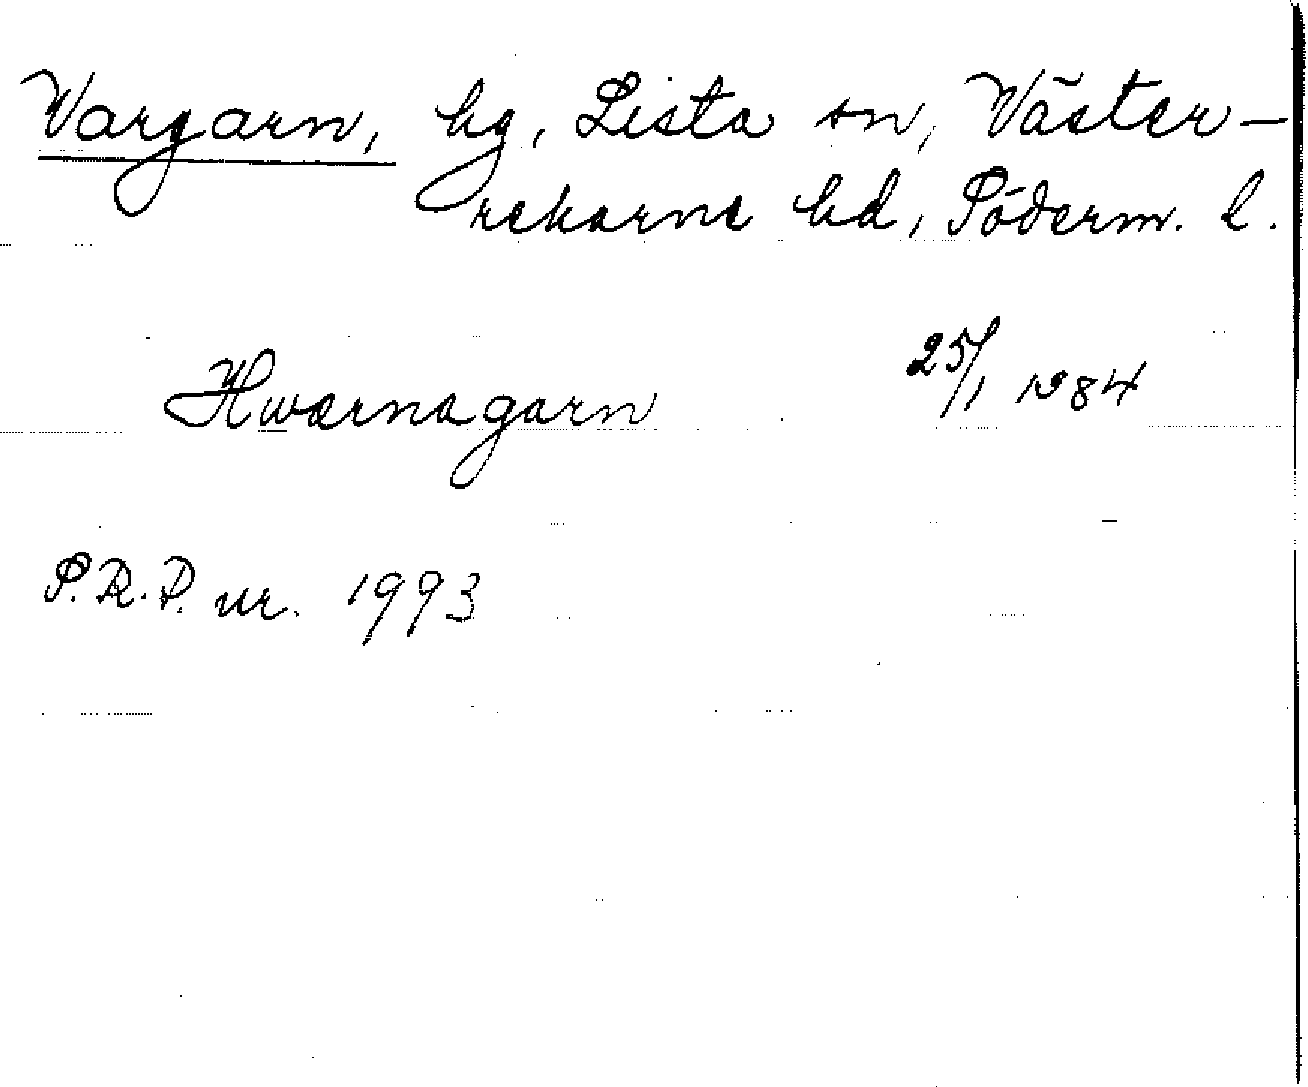 Vargarn, hg, Lista sn, Väster-
rekarne hd, Söderm. l.
Hwarnagarn 25/1 1384
S.R.P. nr. 1993